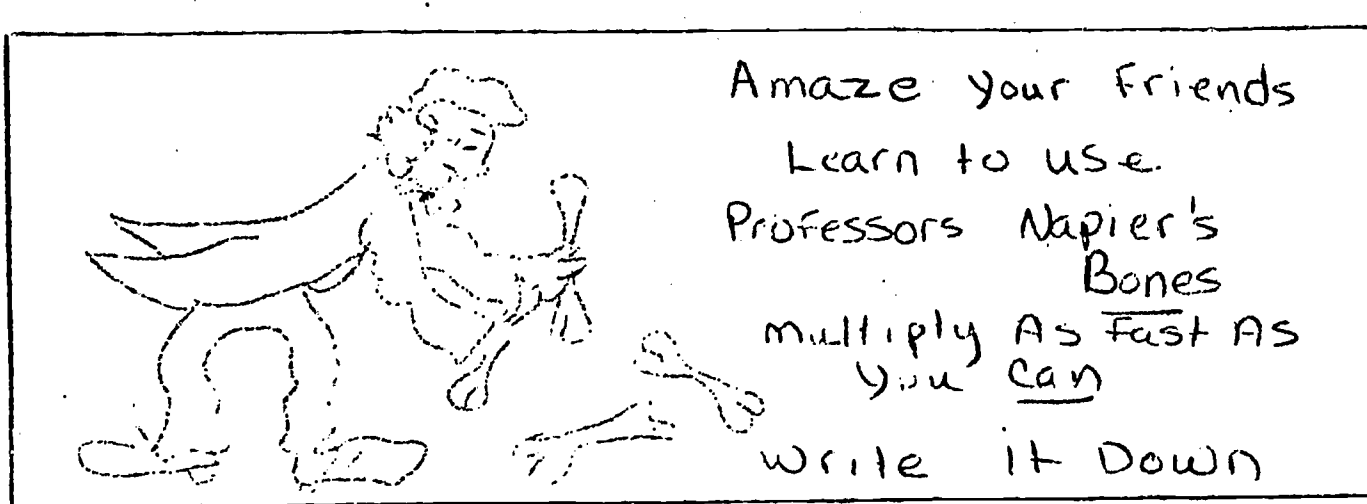 Amaze Your Friends
Learn to use.
Professors Napier's
Bones
Multiply As Fast As
You Can
Write it Down